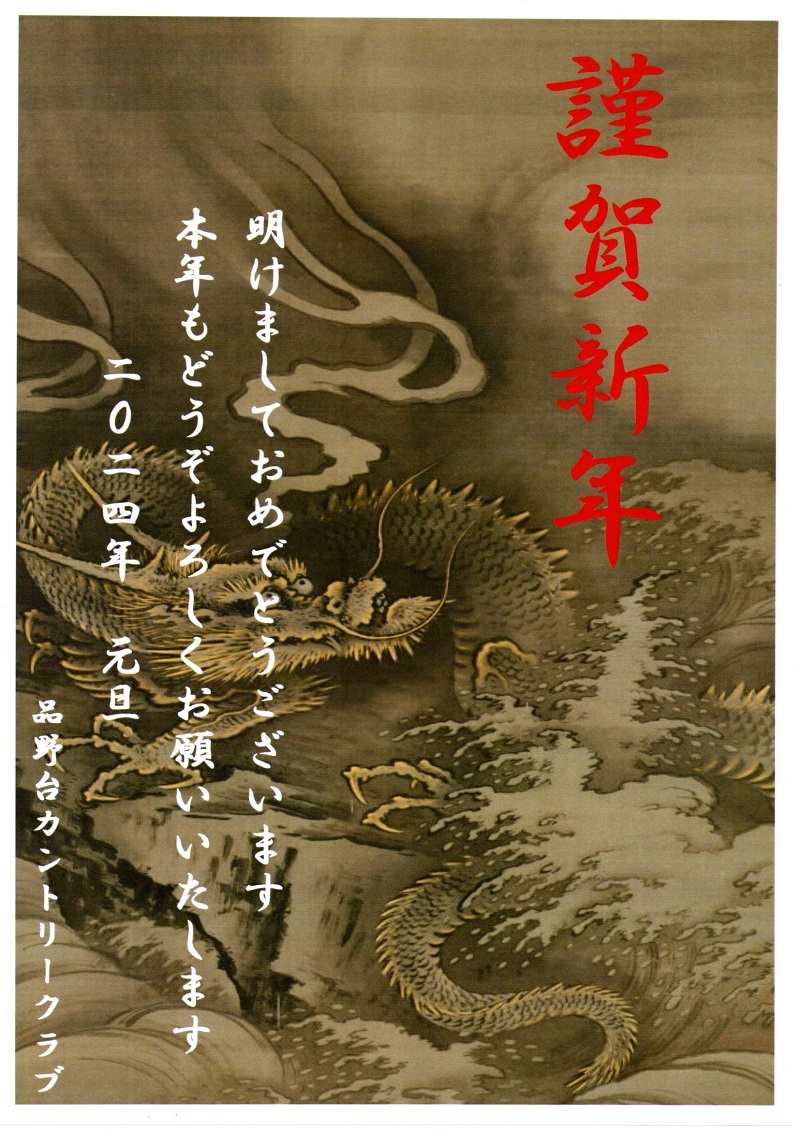 謹賀新年
明けましておめでとうございます
本年もどうぞよろしくお願いいたします
二〇二四年 元旦
品野台カントリークラブ